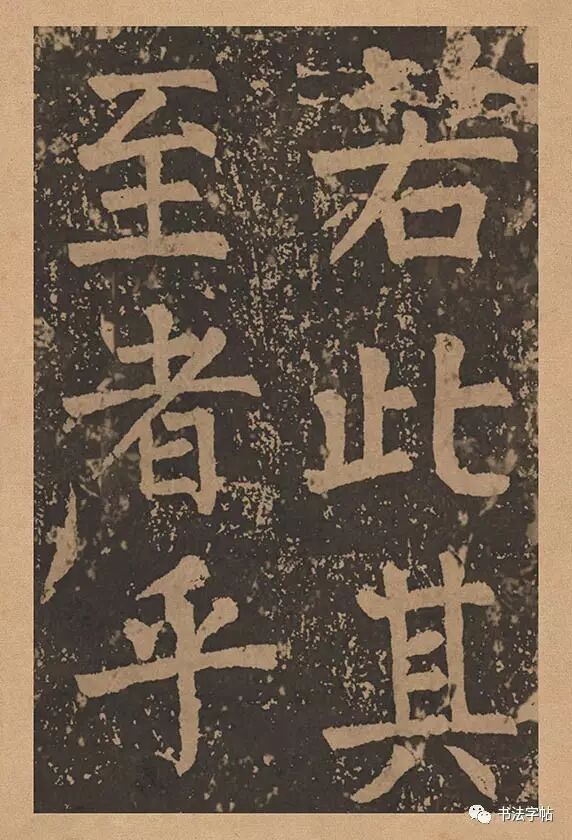 若此其
至者乎
书法字帖